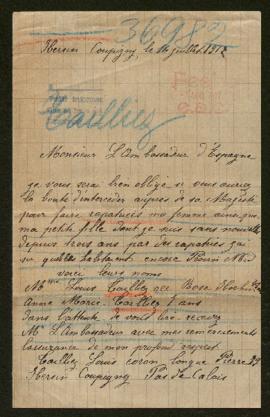 36983
Hersin Coupigny, le 16 juillet 1917
Tailliez
Monsieur L'Ambassadeur d'Espagne
je vous serai bien obligé si vous auriez
la bonté d'intercéder auprès de sa Majesté
pour faire rapatriés ma femme ainsi que
ma petite fille dont je suis sans nouvelle
depuis trois ans par des rapatriés j'ai
su qu'elles habitaient encore
voici leurs noms
Mme Louis Tailliez née
Anne Marie Tailliez ans
dans l'attente de vous lire recevez
Mr L'Ambassadeur avec mes remerciements
l'assurance de mon profond respect
Tailliez Louis coron longue Pierre
Hersin Coupigny Pas de Calais